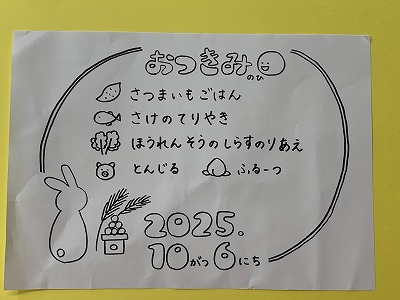 おつきみのひ
さつまいもごはん
さけのてりやき
ほうれんそうのしらすのりあえ
とんじる ふるーつ
2025.
10がつ6にち